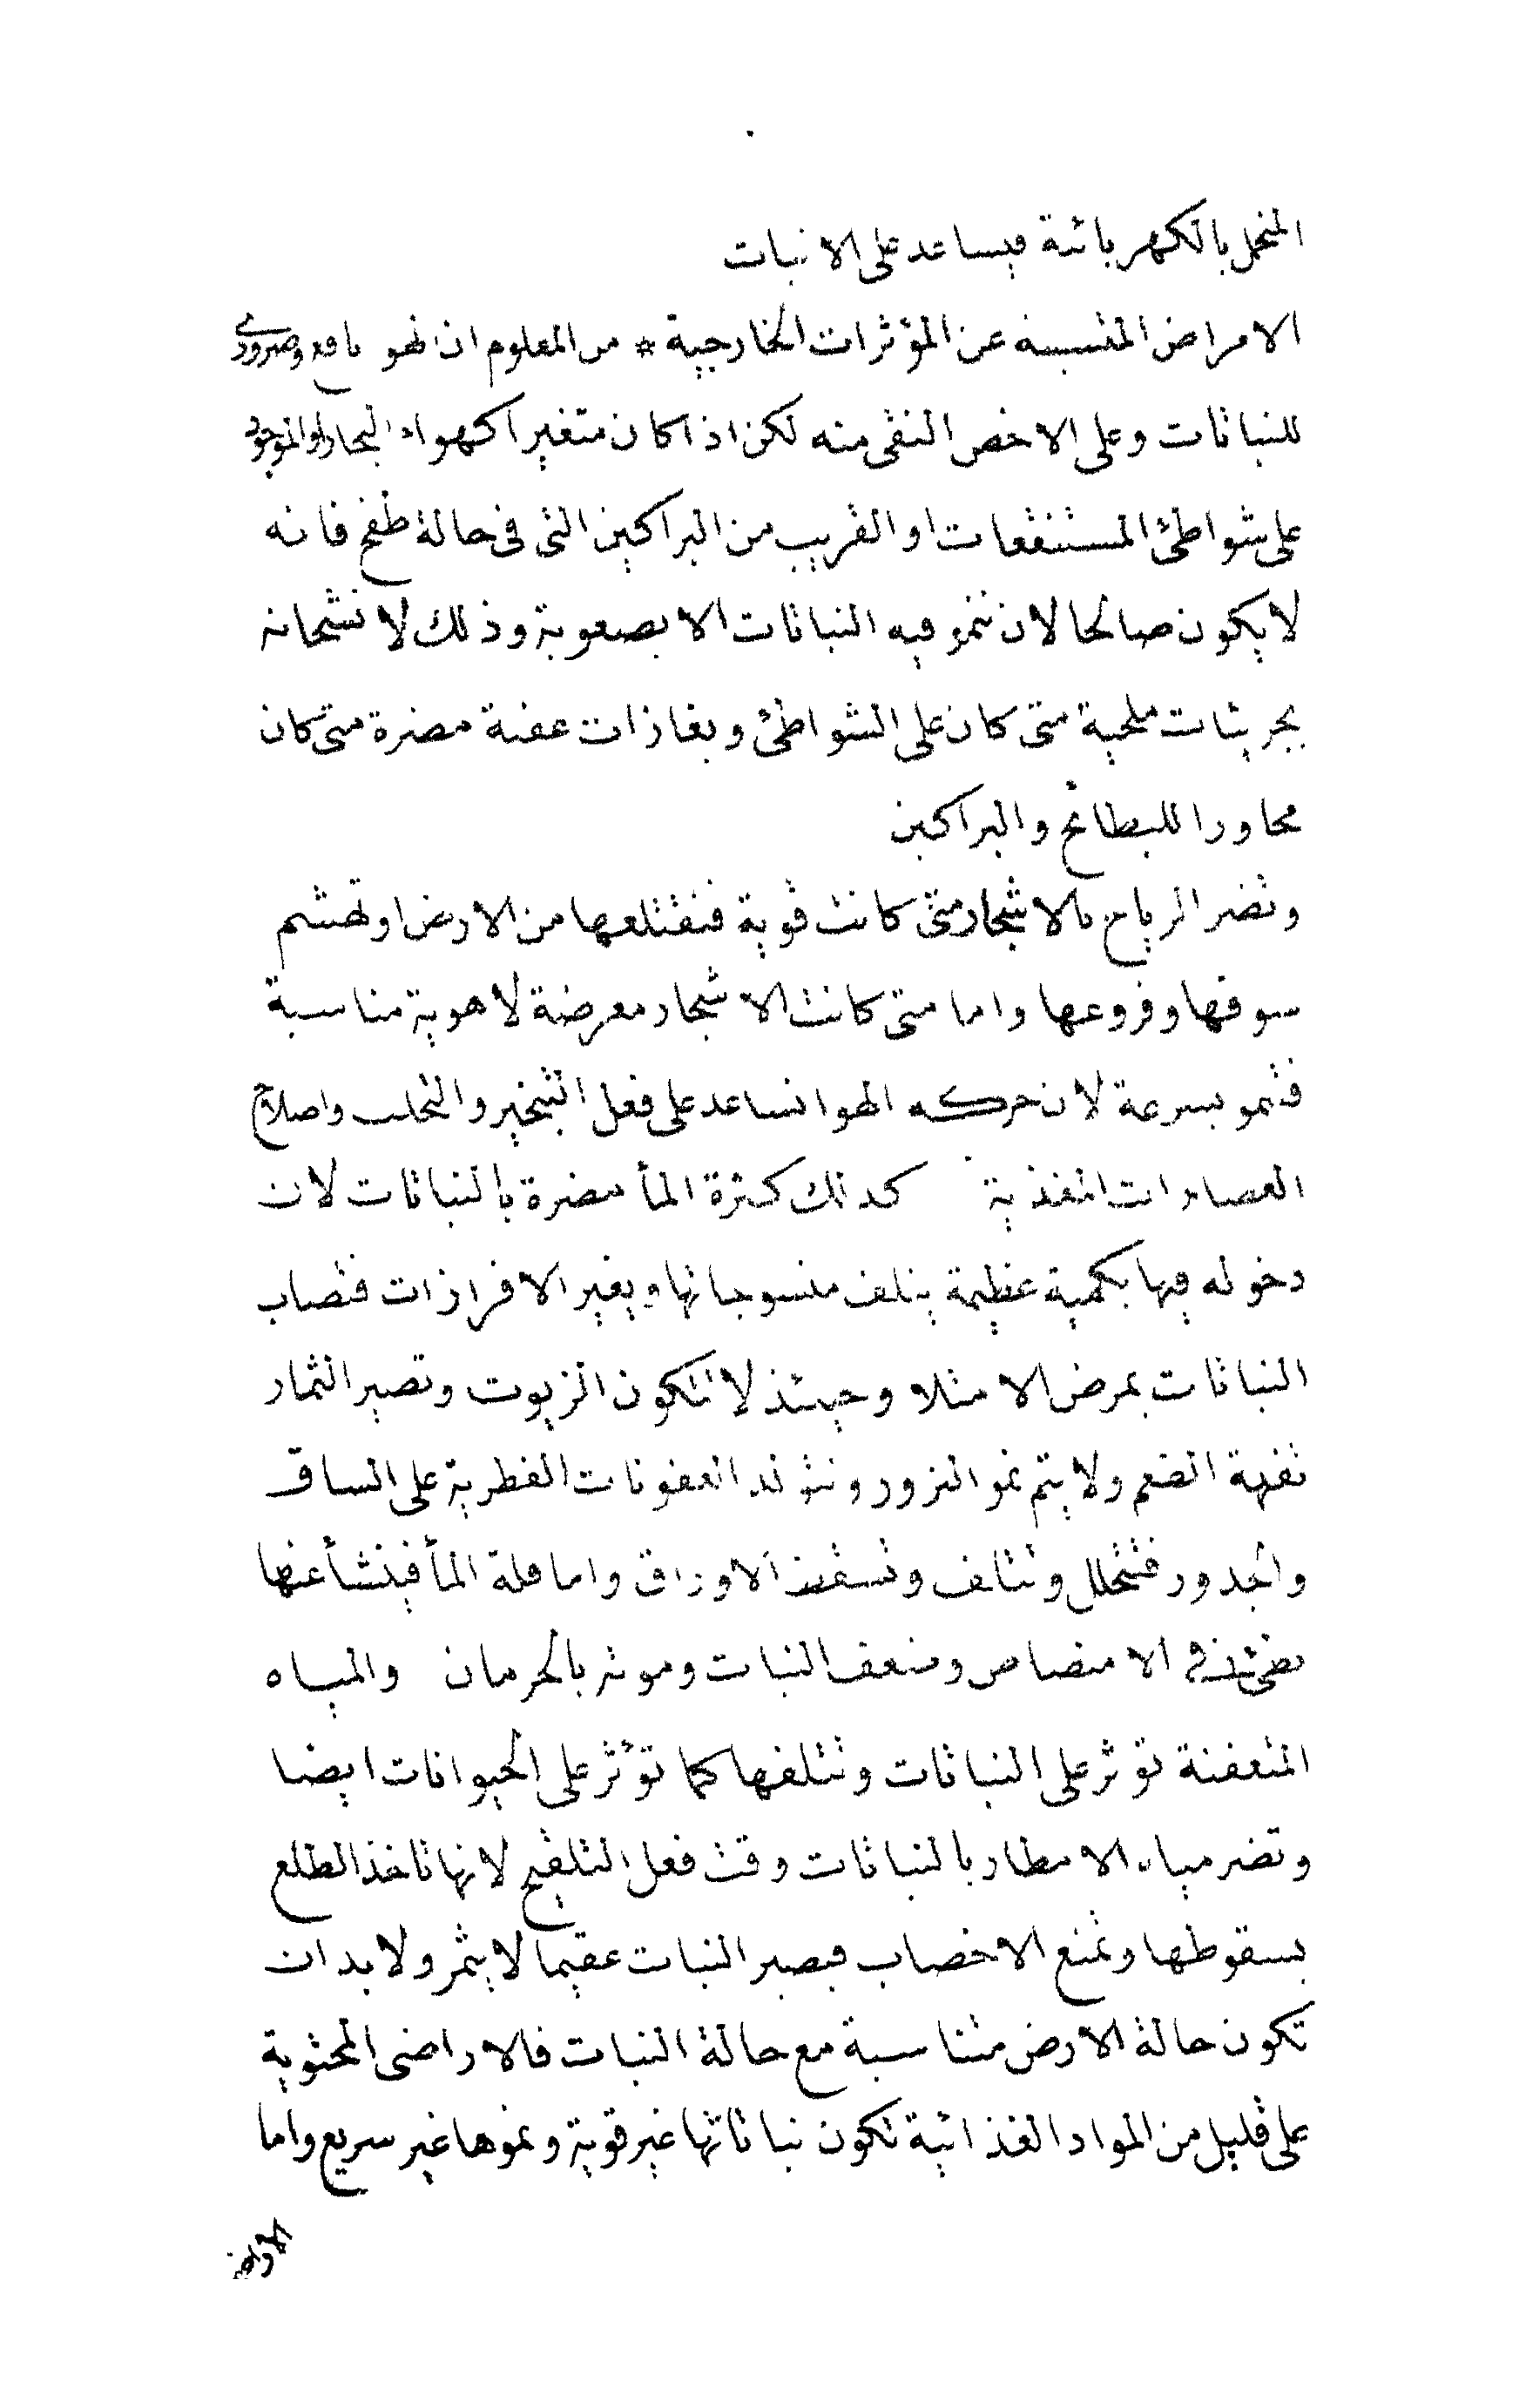 المنحمل بالكهربائية فيساعد على الانبات
الامراض المتسببه عن المؤثرات الخارجية * من المعلوم ان الهو نافع وضرورى
للنباتات وعلى الاخص النقى منه لكن اذا كان متغيرا كهواء البحار او الموجود
على شواطئ المستنقعات او القريب من البراكين التى فى حالة طفح فانه
لا يكون صالحا لان تنمو فيه النباتات الا بصعوبة وذلك لانشحانه
بجزيئات ملحية متى كان على الشواطئ وبغازات عفنة مضرة متى كان
مجاورا للبطائح والبراكين
وتضر الرياح بالاشجار متى كانت قوية فتقتلعها من الارض او تهشم
سوقها وفروعها واما متى كانت الاشجار معرضة لاهوية مناسبة
فتمو بسرعة لان حركه الهوا تساعد على فعل التبخير والتحلب واصلاح
العصارات المغذية كدلك كثرة المأ مضرة بالنباتات لان
دخوله فيها بكمية عظيمة يتلف منسوجاتها ويغير الافرازات فتصاب
النباتات بمرض الامتلا وحيئذ لا تتكون الزيوت وتصير الثمار
تفهة الطعم ولا يتم نمو البزور وتتولد العفونات الفطرية على الساق
والجدور فتتحلل وتتلف وتسقط الاوراق واما قلة المأ فينشأ عنها
الامتصاص وضعف النبات وموته بالحرمان والمياه
المتعفنة توثر على النباتات وتتلفها كما تؤثر على الحيوانات ايضا
وتضر مياه الامطار بالنباتات وقت فعل التلقيح لانها تاخذ الطلع
بسقوطها وتمنع الاخصاب فيصير النبات عقيما لا يثمر ولا بد ان
تكون حالة الارض متناسبة مع حالة النبات فالاراضى المحتوية
على قليل من المواد الغذائية تكون نباتاتها غير قوية ونموها غير سريع واما